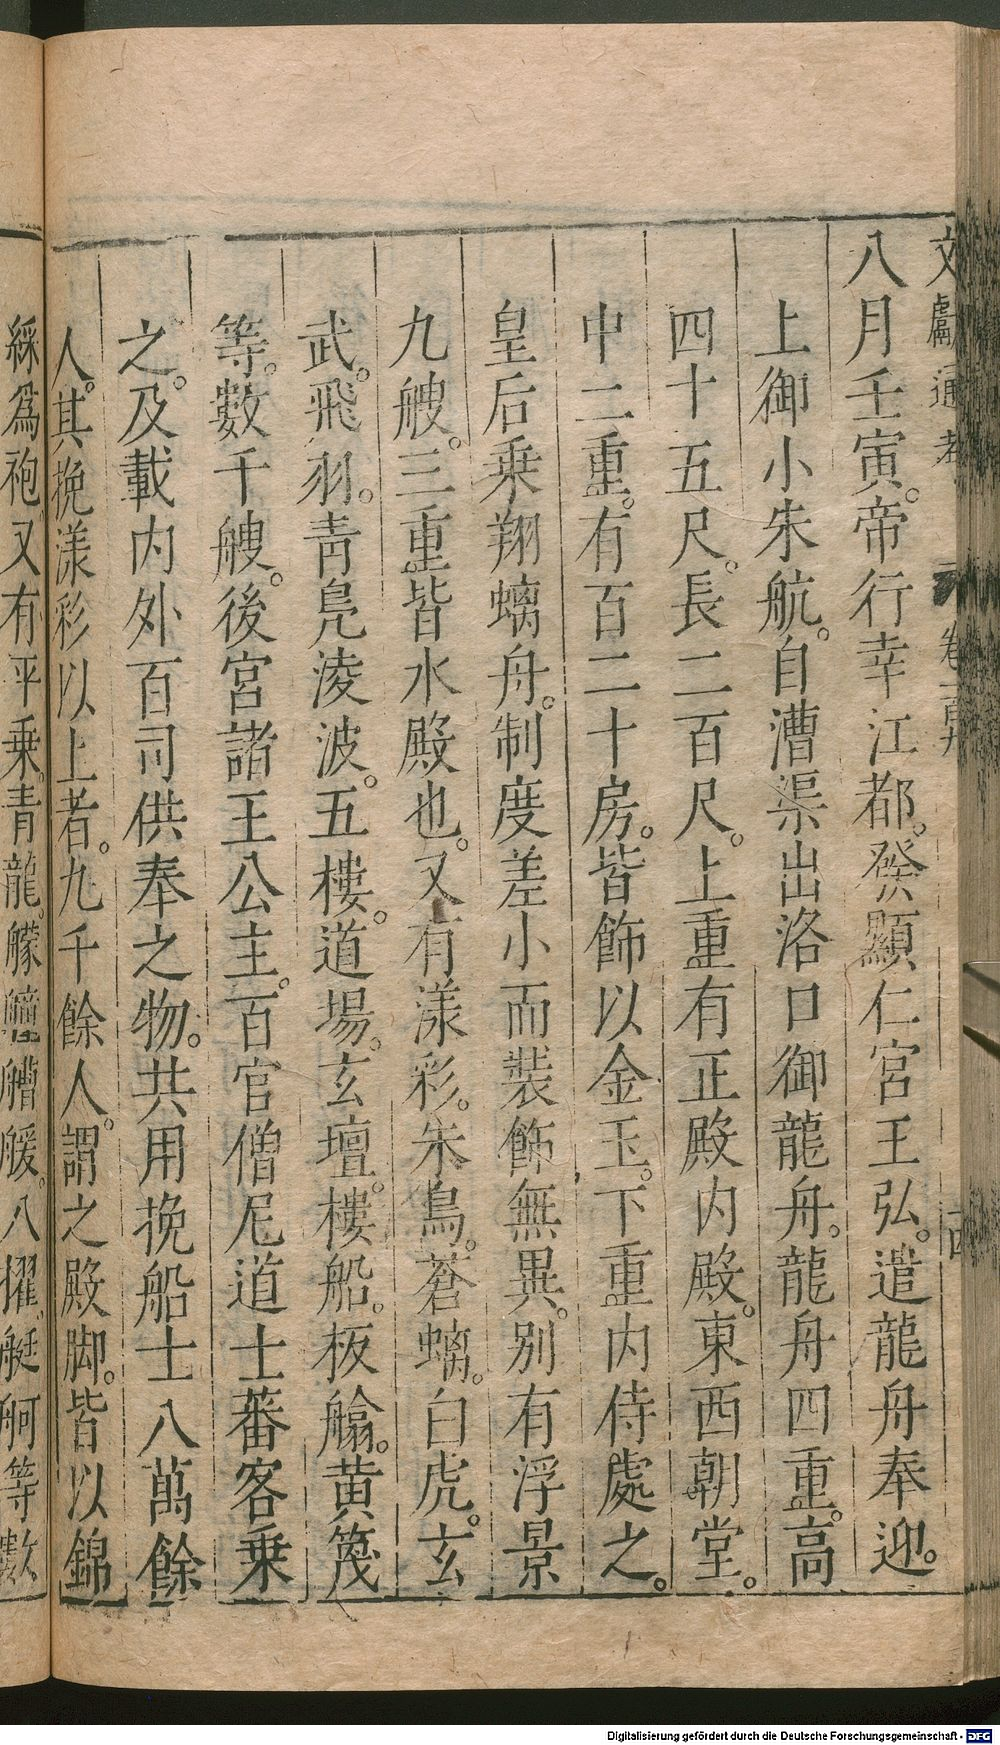 文獻通考 卷一百九 十四
八月壬寅。帝行幸江都。發顯仁宮王弘。遣龍舟奉迎。
上御小朱航。自漕渠出洛口御龍舟。龍舟四重。高
四十五尺。長二百尺。上重有正殿内殿。東西朝堂。
中二重。有百二十房。皆飾以金玉。下重内侍處之。
皇后乗翔螭舟。制度差小而裝飾無異。别有浮景
九艘。三重。皆水殿也。又有漾彩。朱鳥。蒼螭。白虎。玄
武。飛羽。青鳬淩波。五樓。道場。玄壇。樓船。板艙。黄篾
等。數千艘。後宮諸王公主。百官僧尼道士蕃客乗
之。及載内外百司供奉之物。共用挽船士八萬餘
人。其挽漾彩以上者。九千餘人。謂之殿脚。皆以錦
綵爲袍。又有平乗。青龍。艨艟艚艖。八擢。艇舸等數
Digitalisierung gefördert durch die Deutsche Forschungsgemeinschaft - DFG